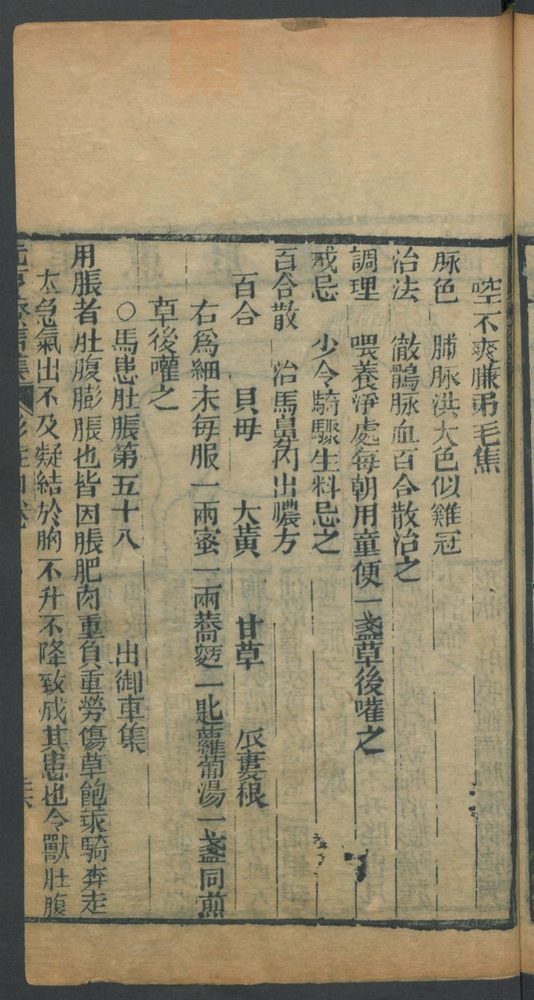 空不爽賺弔毛焦
脉色　肺脉洪大色似雞冠
治法　徹鶻脉血百合散治之
調理　喂養淨處每朝用童便一盞草後嚾之
戒忌　少令騎驟生料忌之
百合散　治馬鼻內出膿方
百合　貝母　大黃　甘草　瓜蔞根
右爲細末每服一兩蜜一兩蕎麪一匙蘿蔔湯一盞同煎
草後嚾之
○馬患肚脹第五十八　出御車集
用脹者肚腹膨脹也皆因脹肥肉重負重勞傷草飽乘騎奔走
太急氣出不及凝結於胸不升不降致成其患也令獸肚腹